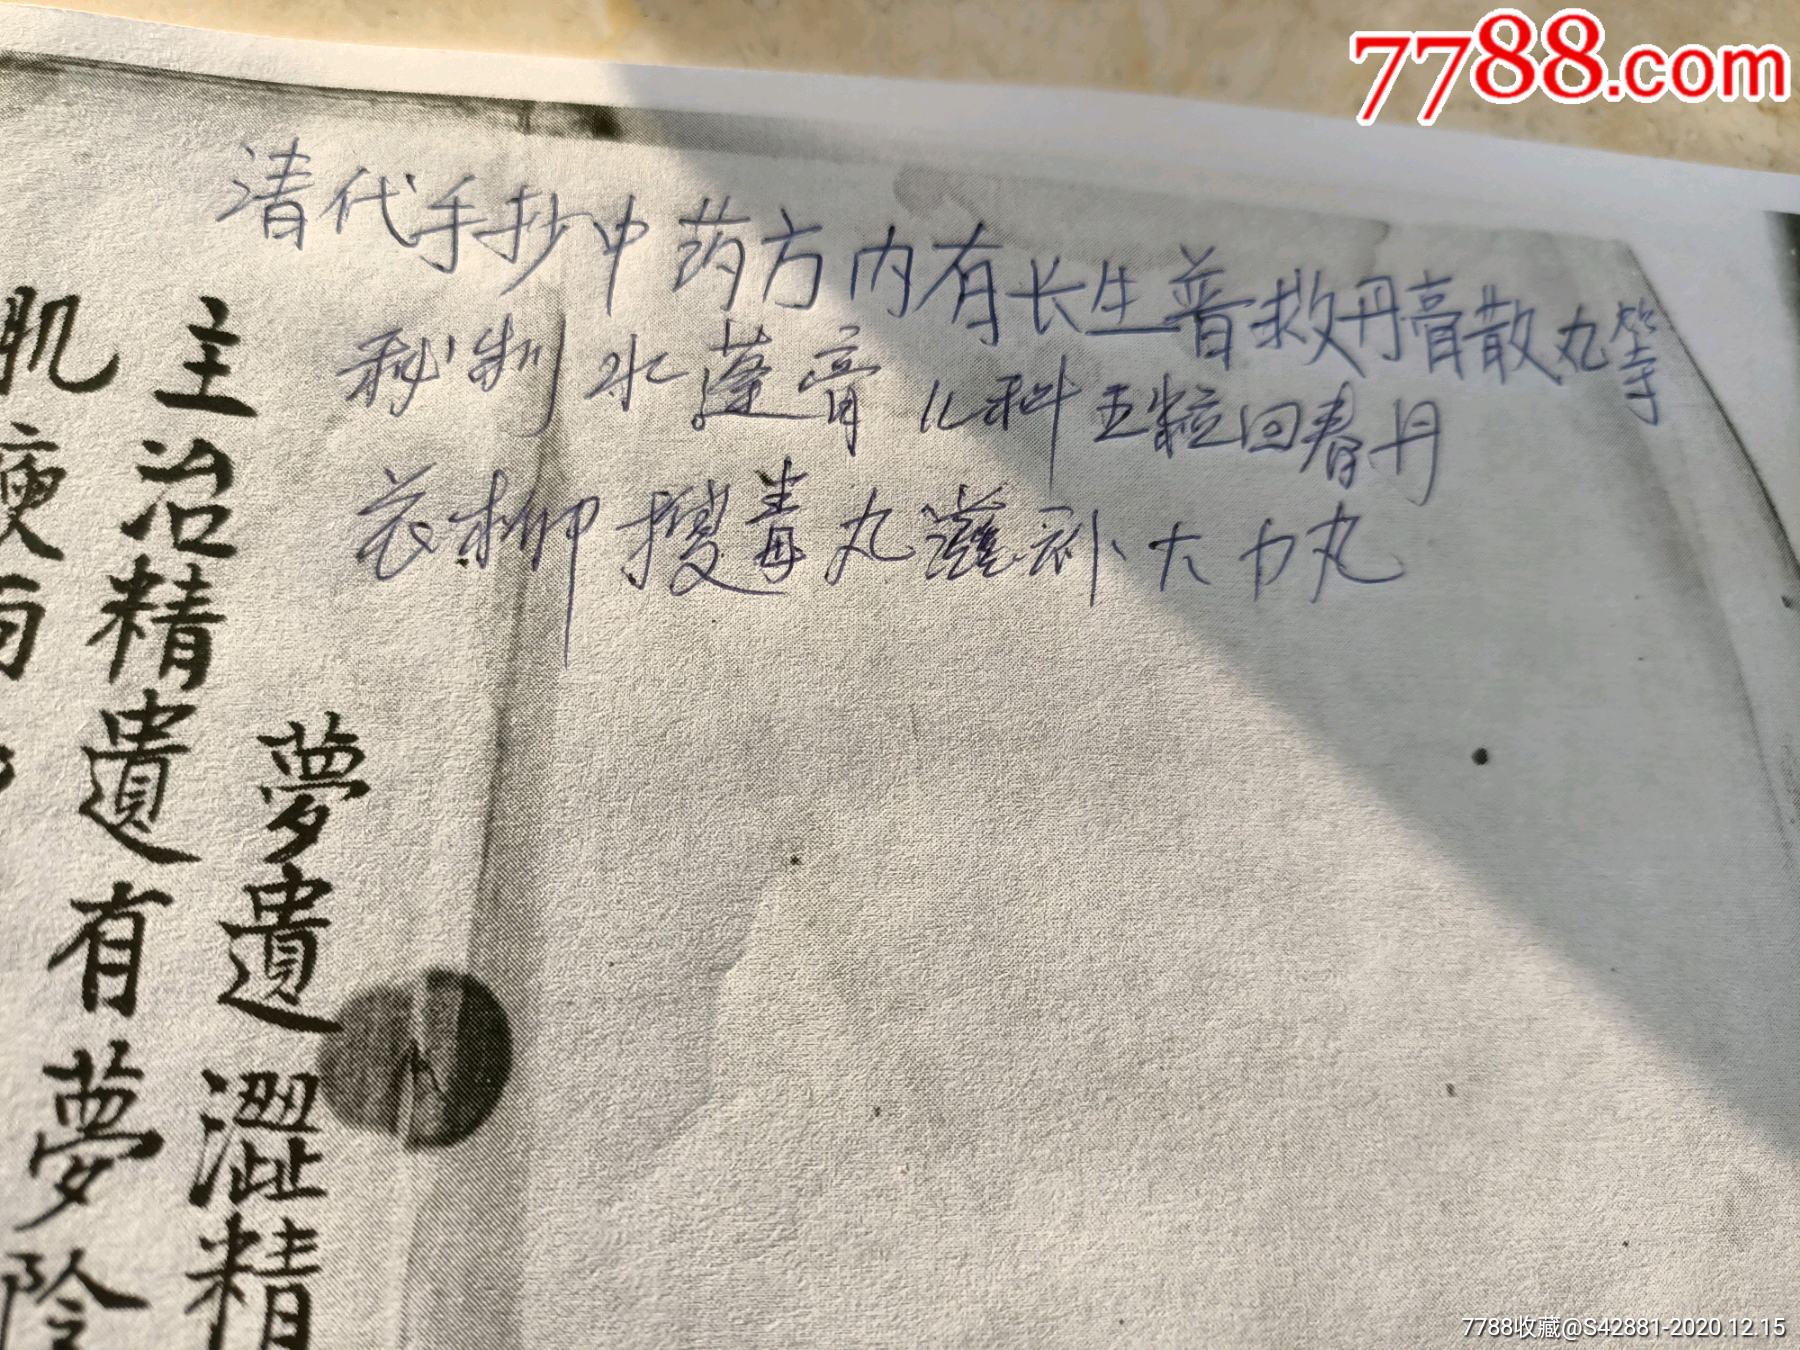 7788.com
清代手抄中药方内有长生普救丹膏散丸等
秘制水蓬膏儿科五粒回春丹
花柳搜毒丸滋补大力丸
夢遺澀精
主治精遺有夢陰
肌瘦
7788收藏@S42881-2020.12.15